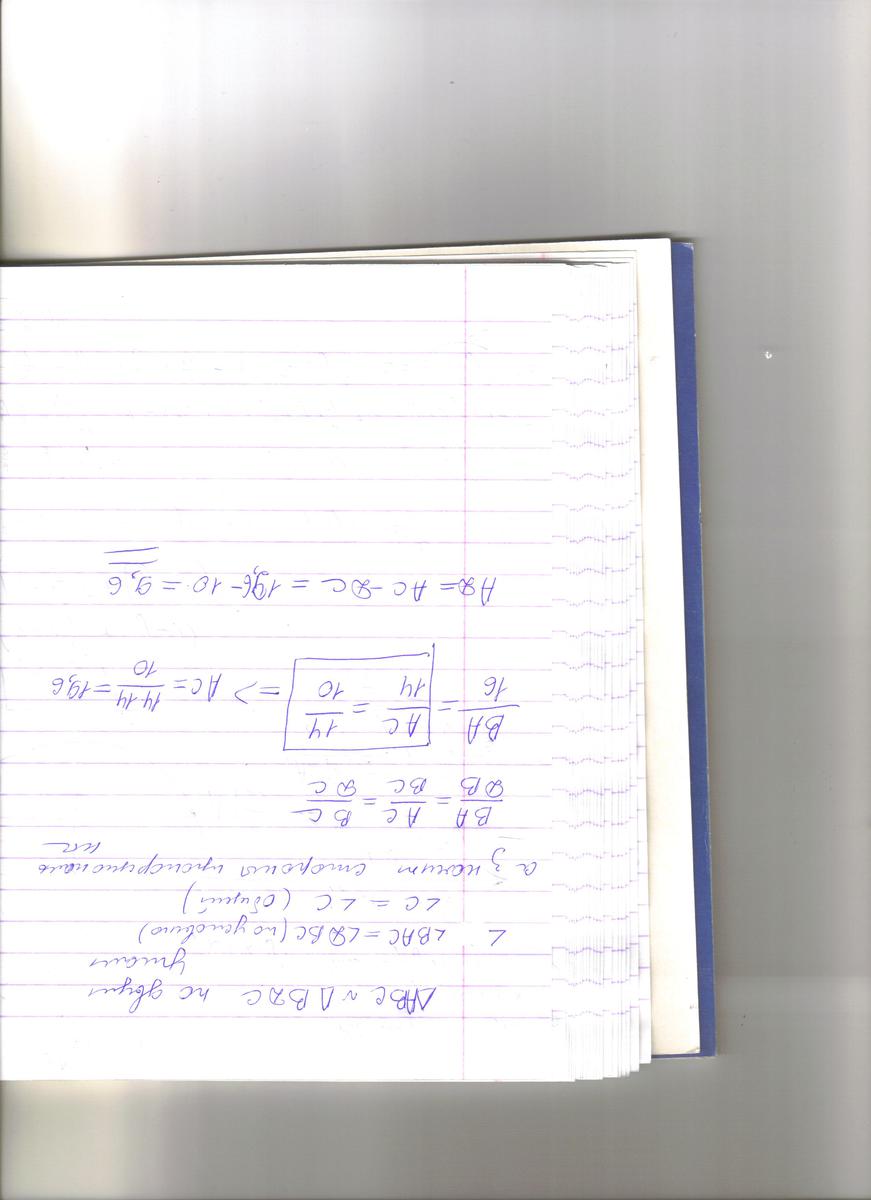 △ABC ~ △BDC по двум
углам
∠ ∠BAC = ∠DBC (по условию)
∠C = ∠C (общий)
а значит стороны пропорциональ
ны
BA/DB = AC/BC = BC/DC
BA/16 = AC/14 = 14/10 => AC = 14·14/10 = 19,6
AD = AC - DC = 19,6 - 10 = 9,6